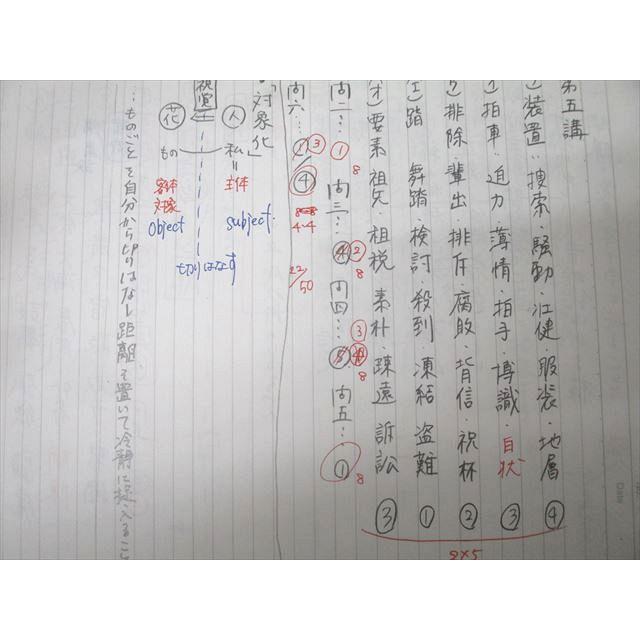 第五講
装置‥捜索・騒動・壮健・服装・地層 ④
拍車・迫力・薄情・拍手・博識・白状 ③
排除・輩出・排斥・腐敗・背信・祝杯 ②
(エ)踏 舞踏・検討・殺到・凍結 盗難 ①
(オ)要素 祖先・租税 素朴・疎遠 訴訟 ③
2×5
問二… ① 8 問三… ④ ② 8 問四… ③ 8 問五… ① 8
問六… ③ ④
4.4
22/50
「対象化」
人 私=主体 subject
視覚
切りはなす
花 もの 客体 対象 object
…ものごとを自分から切りはなし距離を置いて冷静に捉えること
Date